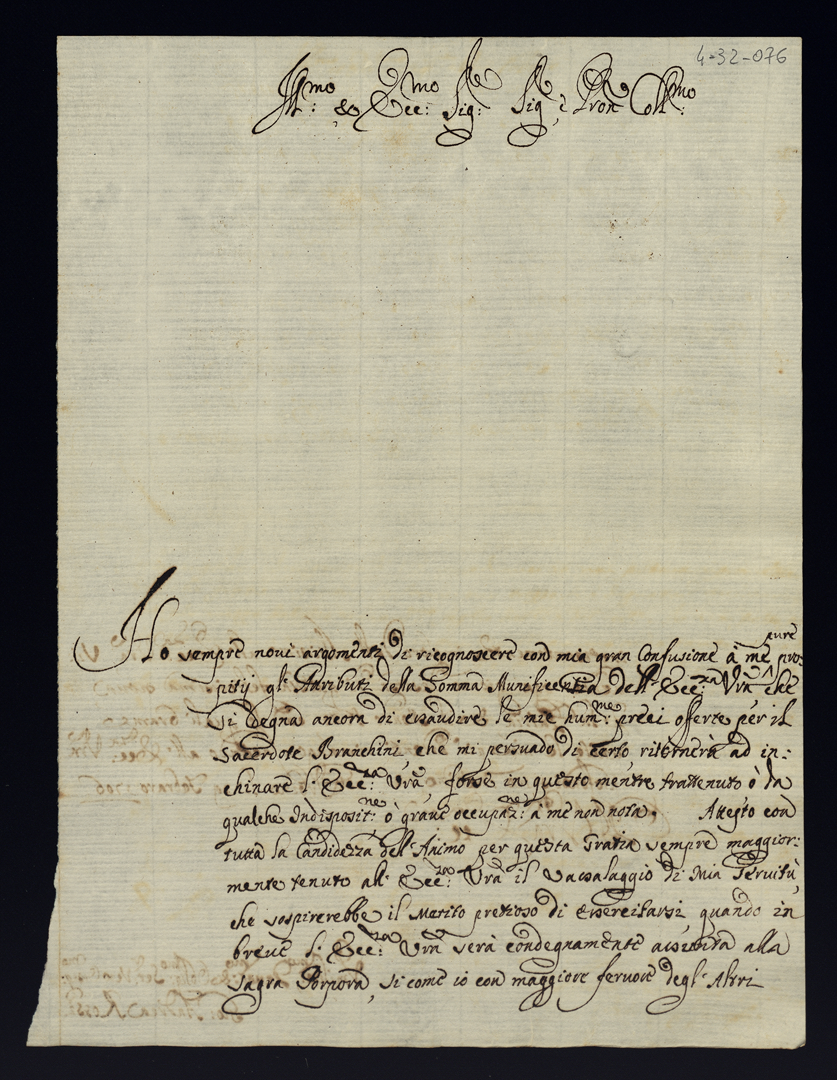 4-32-076
Ill:mo & Ecc:mo Sig:re Sig:r e Pron Coll:mo
pure
Ho sempre novi argomenti di ricognoscere con mia gran Confusione à me pro-
pitij gl' Attributi della Somma Munificentia dell' Ecc:za Vra che
si degna ancora di esaudire le mie hum:me preci offerte per il
Sacerdote Branchini, che mi persuado di certo ritornerà ad in:
chinare l' Ecc:za Vra, forse in questo mentre trattenuto ò da
qualche Indisposit:ne ò grave occupaz:ne à me non nota. Attesto con
tutta la Candidezza dell' Animo per questa Gratia sempre maggior:
mente tenuto all' Ecc:za Vra il Vassalaggio di Mia Servitù,
che sospirerebbe il Merito pretioso di essercitarsi quando in
breve l' Ecc:za Vra serà condegnamente assunta alla
sagra Porpora, si come io con maggiore fervore degl' Altri